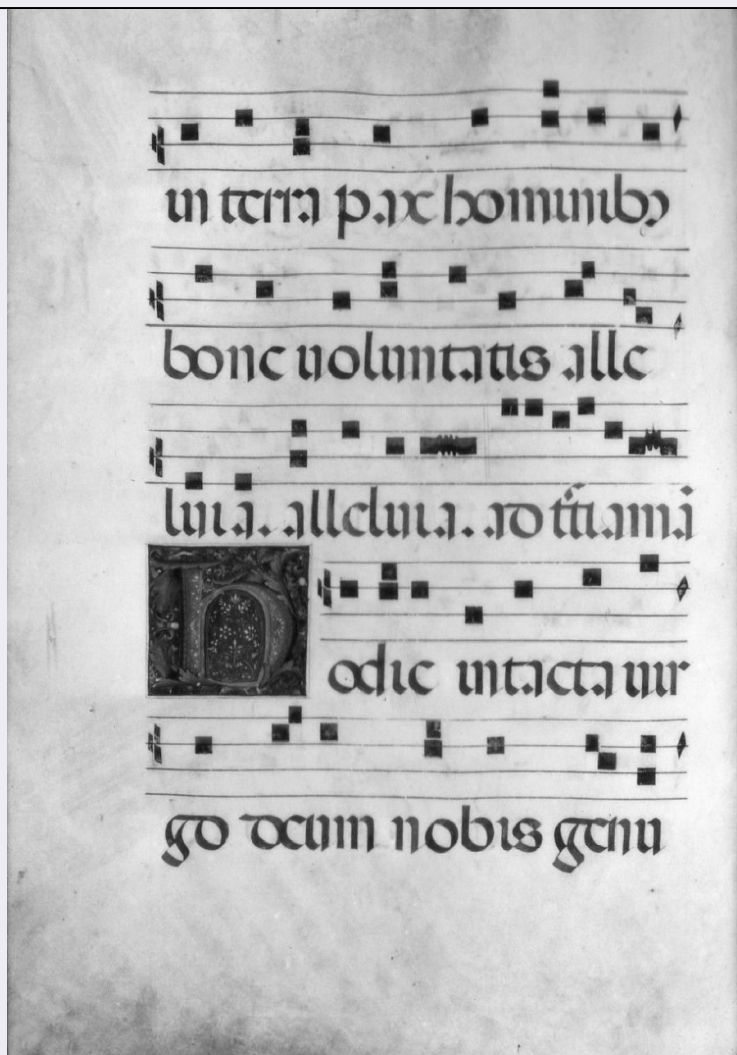 in terra pax hominibꝫ
bone uoluntatis alle
luia. alleluia. ad
Hodie intacta uir
go deum nobis genu